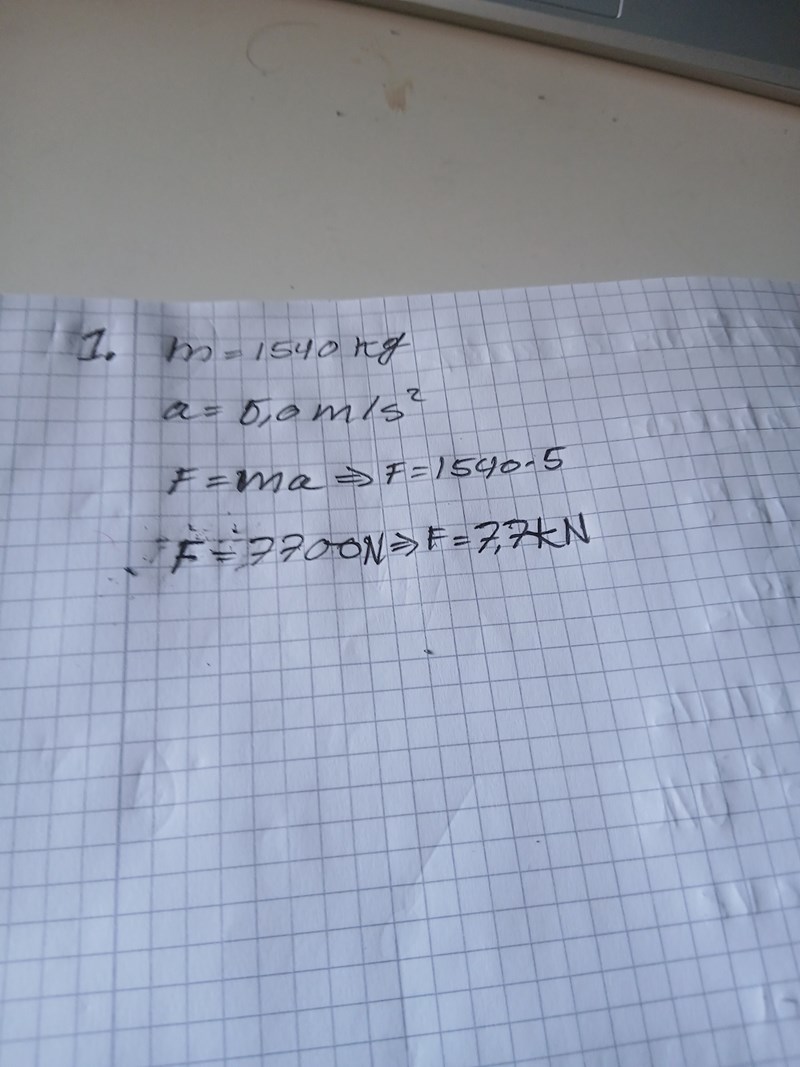 1. m = 1540 kg
a = 5,0 m/s²
F = ma ⇒ F = 1540·5
F = 7700N ⇒ F = 7,7kN